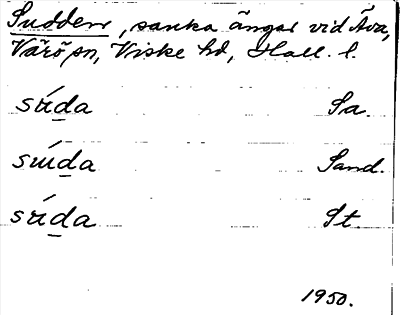 Sudden, sanka ängar vid Åva,
Värö sn, Viske hd, Hall. l.
súda Sa.
súda Sand.
súda St.
1950.